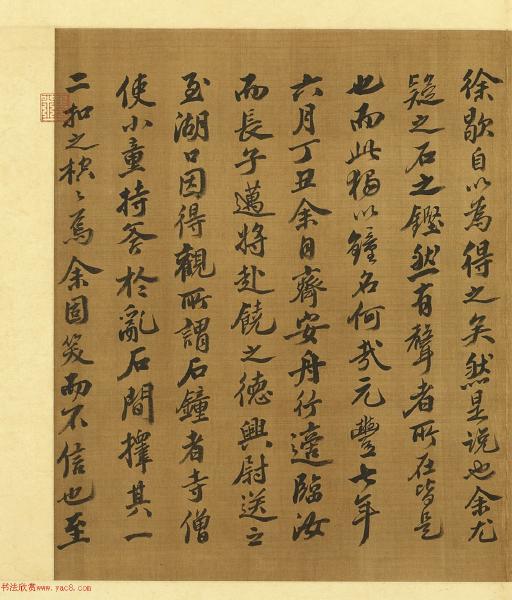 徐歇自以為得之矣然是说也余尤
疑之石之鏗然有聲者所在皆是
也而此獨以鐘名何哉元豐七年
六月丁丑余自齊安舟行適臨汝
而長子邁將赴饒之德興尉送之
至湖口因得觀所謂石鐘者寺僧
使小童持斧於亂石間擇其一
二扣之栱〻焉余固笑而不信也至
书法欣赏www.yac8.com